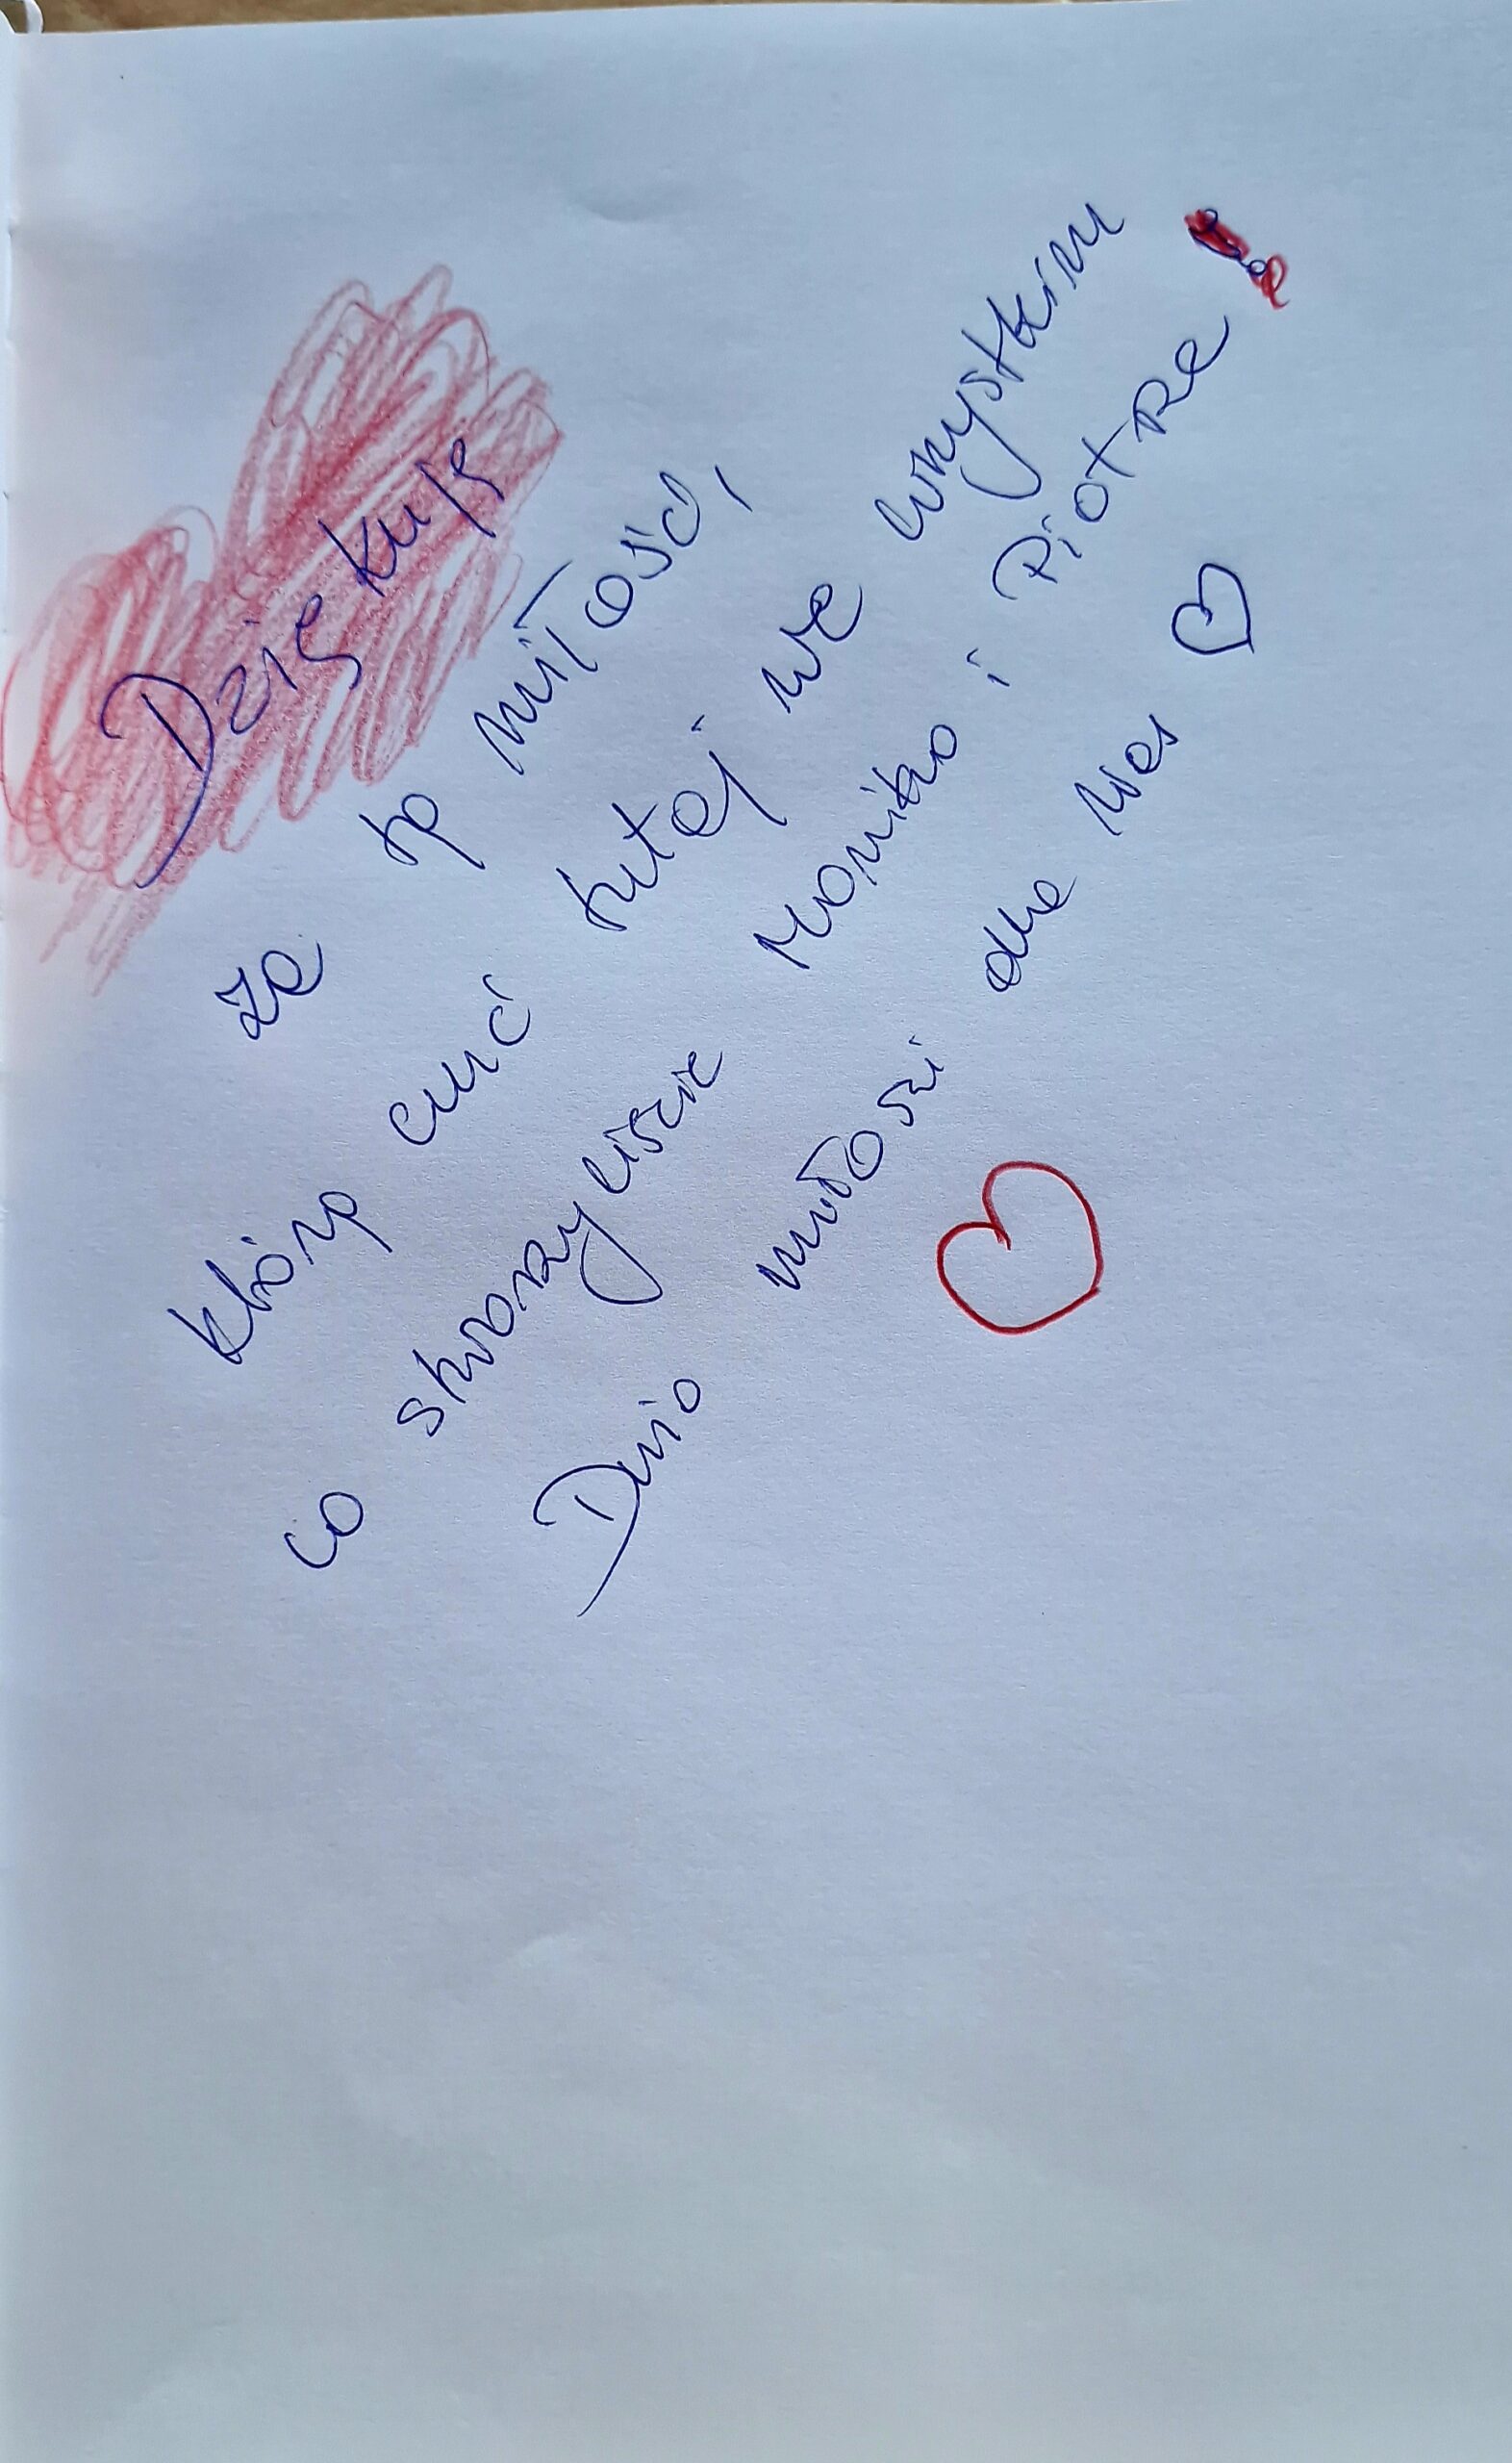 Dziękuję
za tą miłość,
którą czuć tutaj we wszystkim
co stworzyliście Moniko i Piotrze!
Dużo miłości dla Was ♡